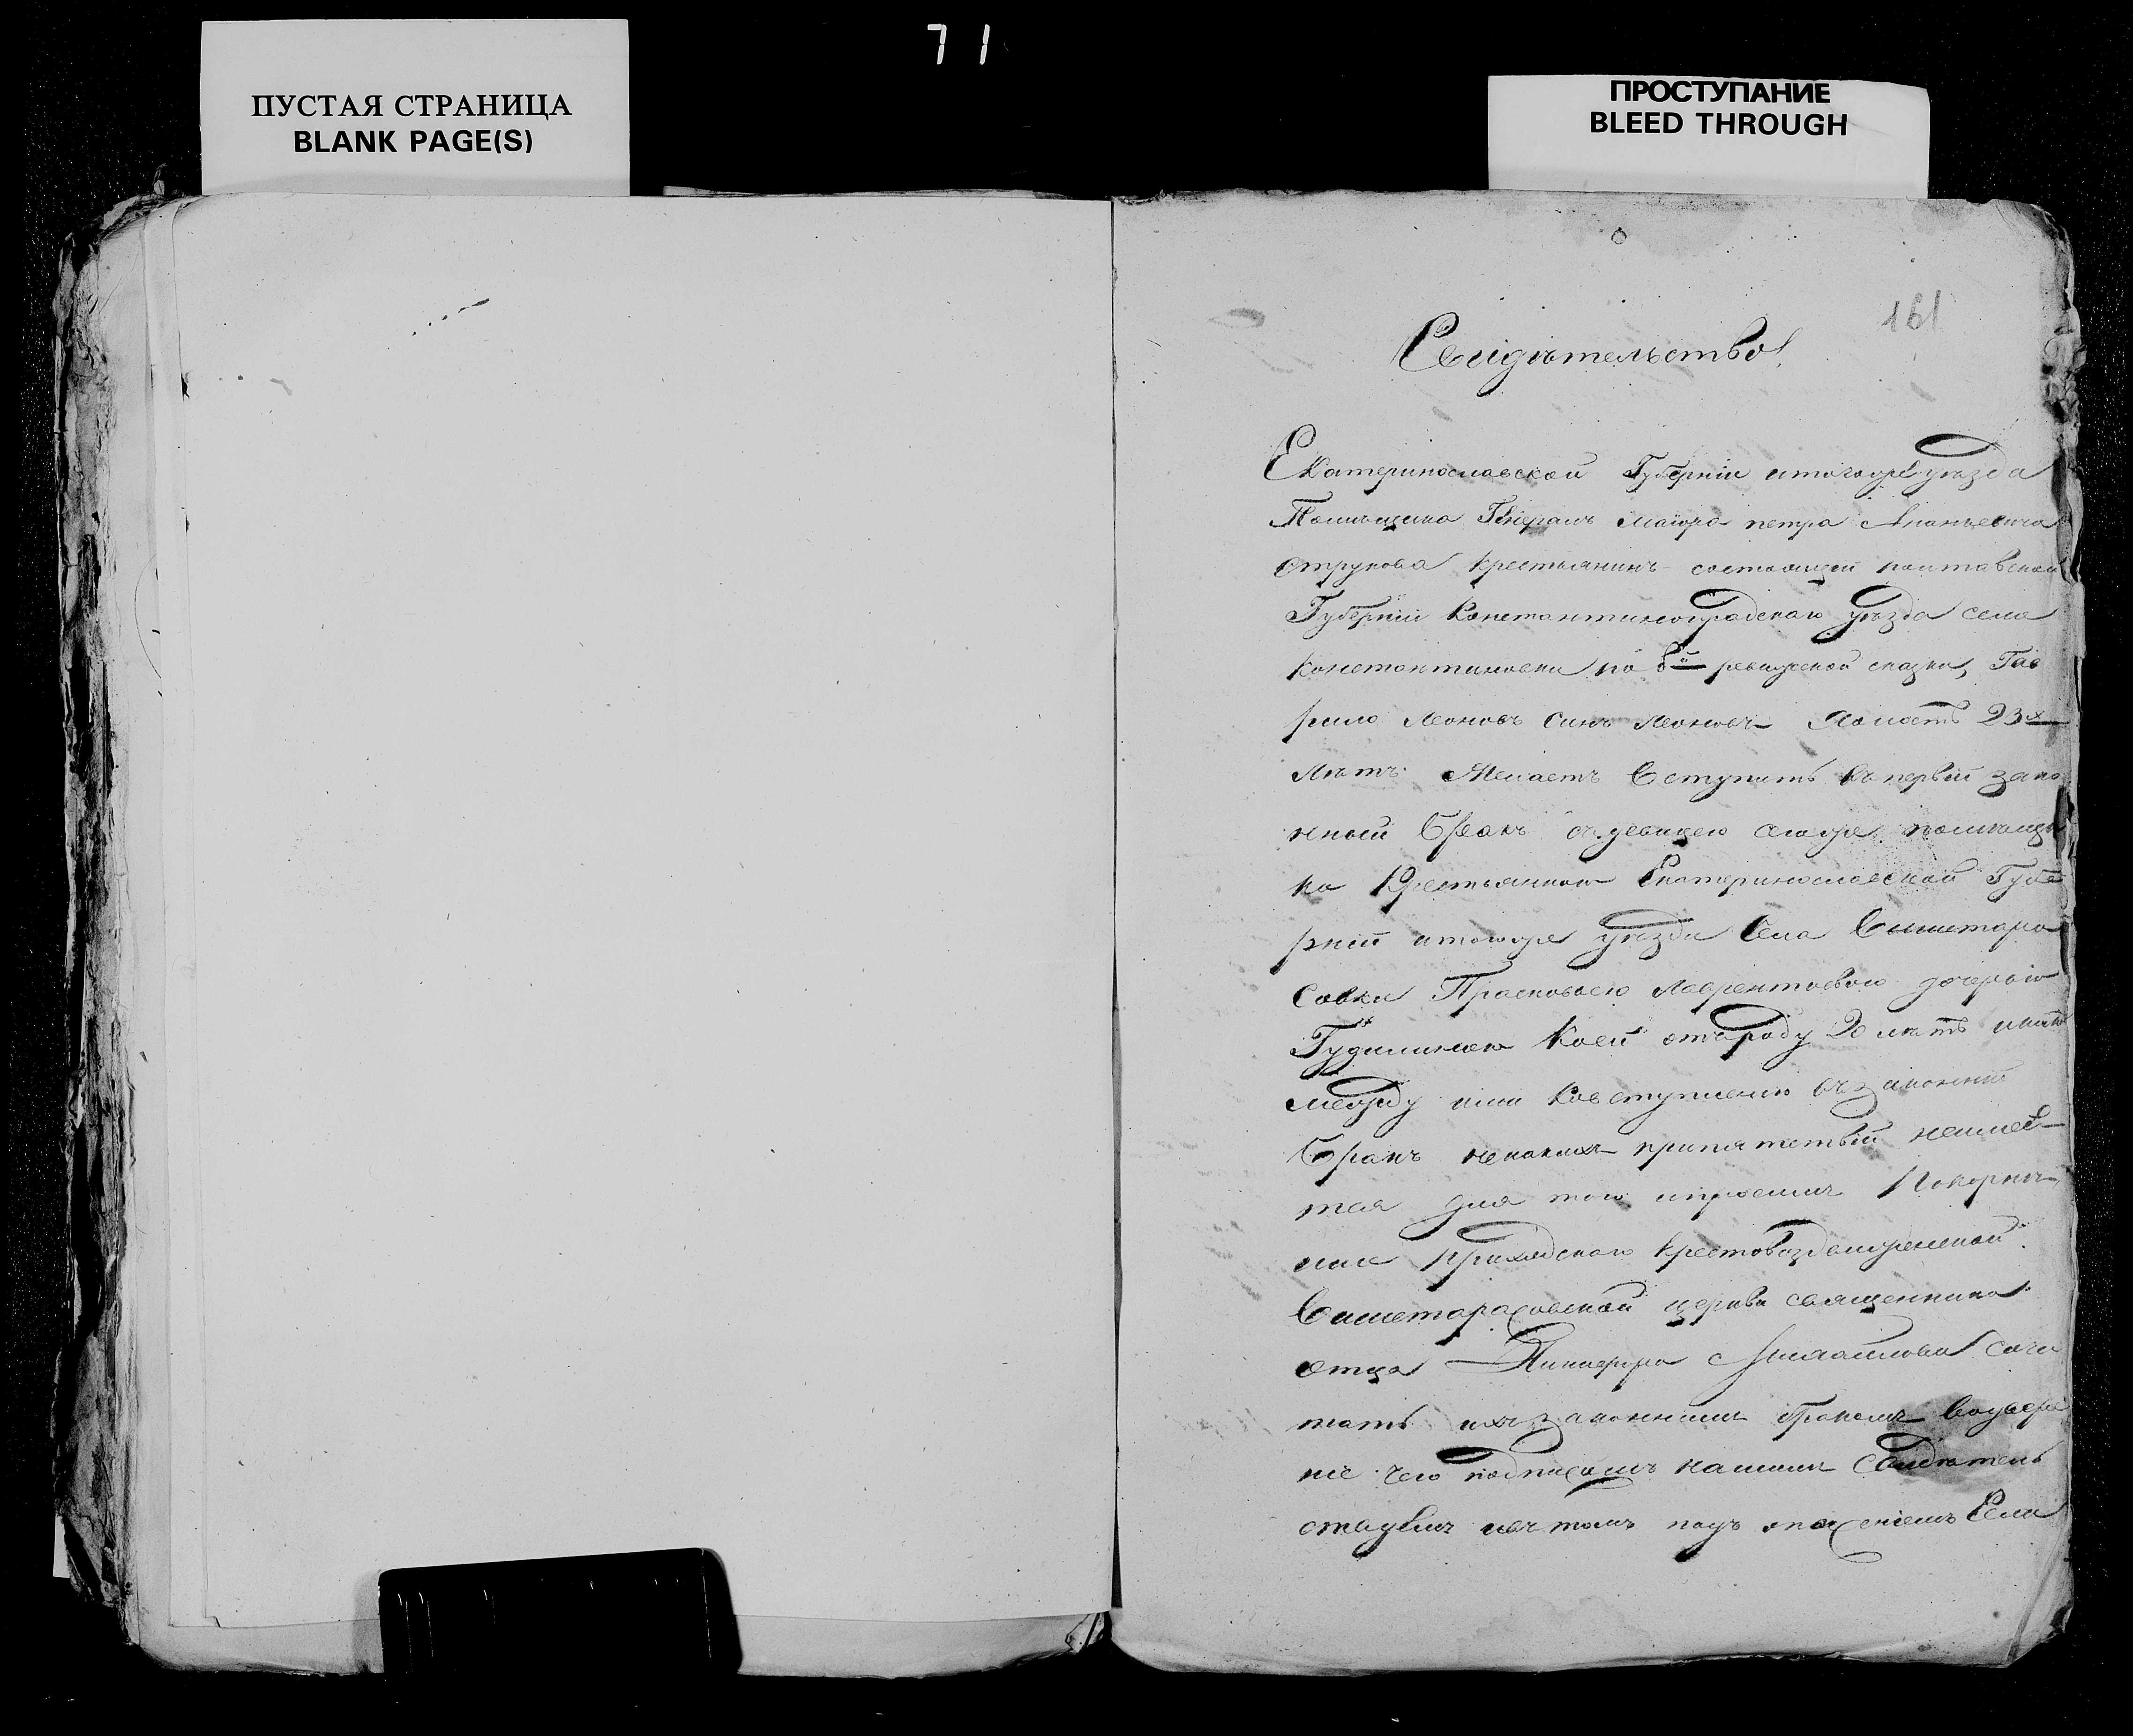 71
ПУСТАЯ СТРАНИЦА
BLANK PAGE(S)
ПРОСТУПАНИЕ
BLEED THROUGH
161
Свидѣтельство
Екатеринославской Губерніи итогоже уѣзда
Помѣщика Генералъ Маіора петра Ананьевича
Струкова крестьянинъ состоящей полтавской
Губерніи Константиноградскаго уѣзда села
константиновки по 8й ревижской сказки, Гав
рило Леоновъ синъ Леоновъ 23х
лѣтъ Желаетъ Вступить въ первій зако
ной Бракъ съ девицею тогоже помѣщи
ка Крестьянкою Екатеринославской Губе
рніи итогоже уѣзда Села Вишетара
совки Прасковьею Лаврентьевою дочерью
коей отъ роду 20 лѣтъ
между ими Ковступленію въ законній
Бракъ никакихъ припятствій неимѣе
тся для того просимъ Покорнѣ
ше приходскаго крестовоздвиженской
Вишетарасовской церкви священника
отца Никифора сочи
тать ихъ законнимъ бракомъ Воувере
ніе чего подписомъ нашимъ Свидѣтель
ствуемъ въ томъ подъ Если